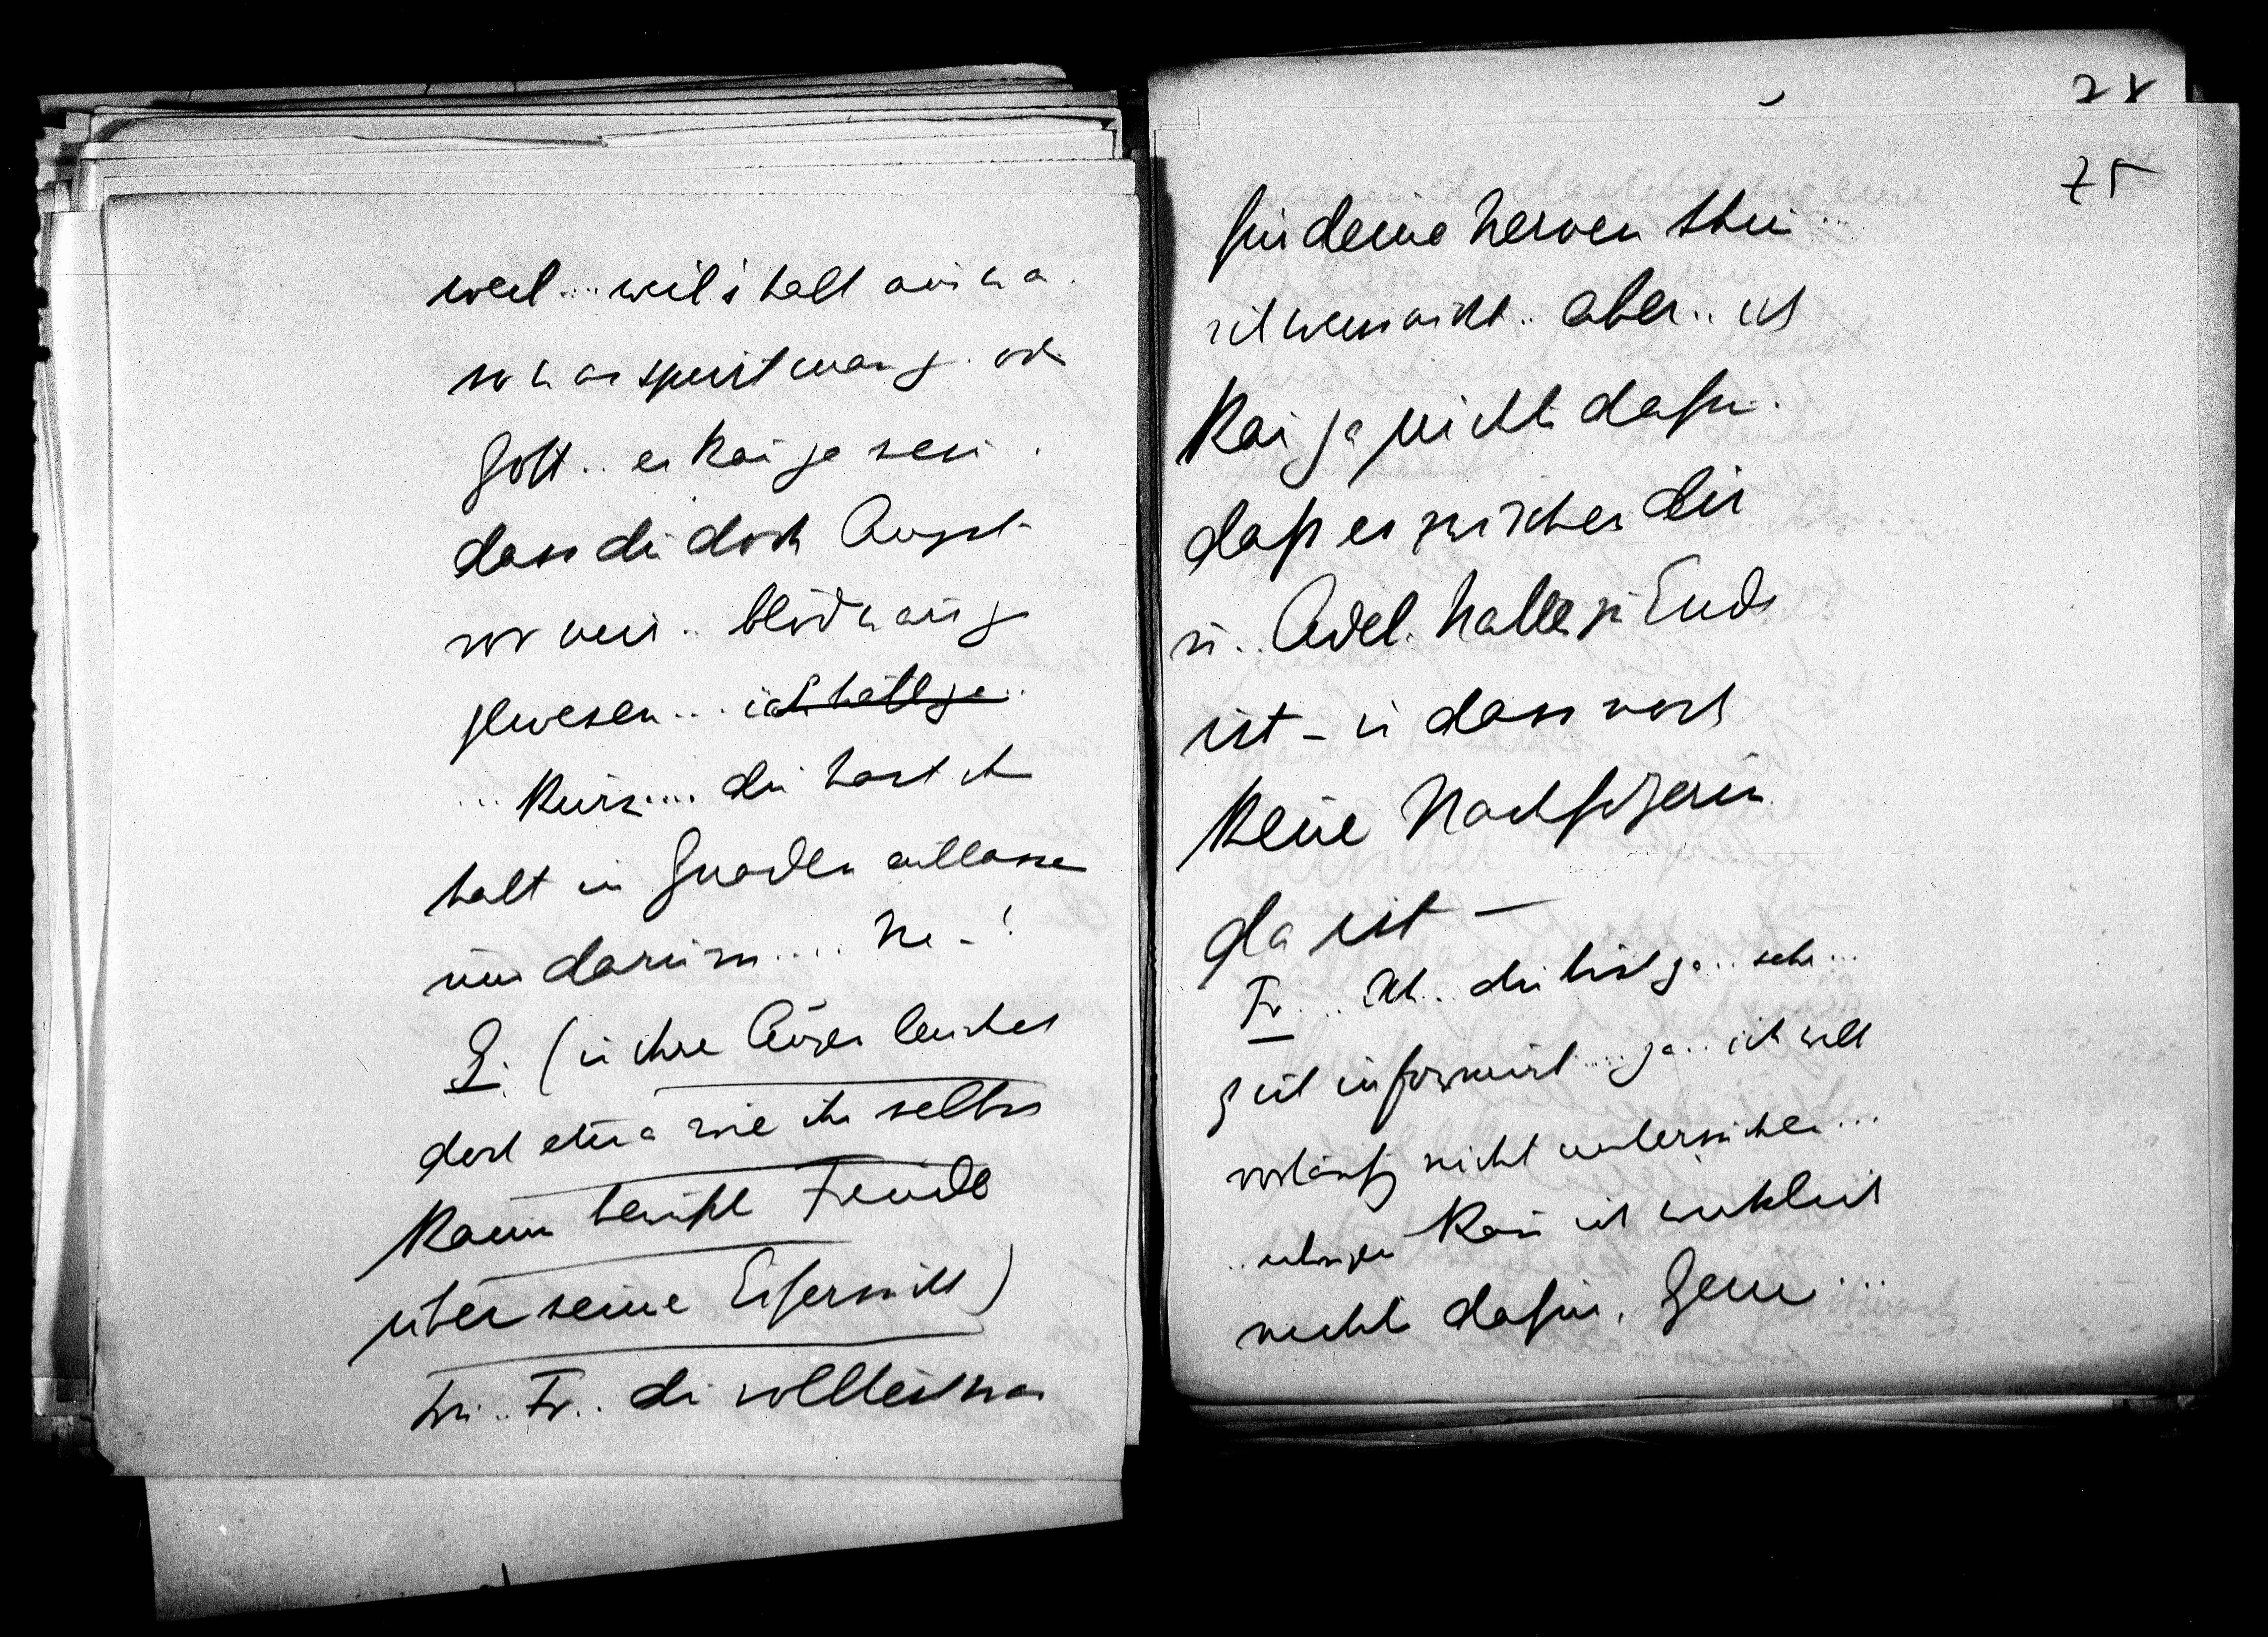 weil... weil's halt auch a
so a Sport war f.
Gott.. es kan ja sein.
dass du doch Angst
vor mir.. blöd wär's
gewesen... ich hätt ja..
... Kurz.... du hast ihn
halt in Gnaden entlassen
und darum.... Na -!
G. (in ihre Augen leuchtet
doch etwa wie ihr selbst
kaum bewußte Freude
über seine Eifersucht)
Fr.. du solltest was
28
75
für deine Nerven thun...
ich weiss nicht.. aber.. ich
kan ja nichts dafür.
daß es zwischen dir
u.. Adel. Natter zu Ende
ist - u dass noch
keine Nachfolgerin
da ist —
Fr... Ach.. du bist ja.. sehr...
gut informirt.... ja.. ich will
vorläufig nicht untersuchen...
.. übrigens kan ich wirklich
nichts dafür, Genia...